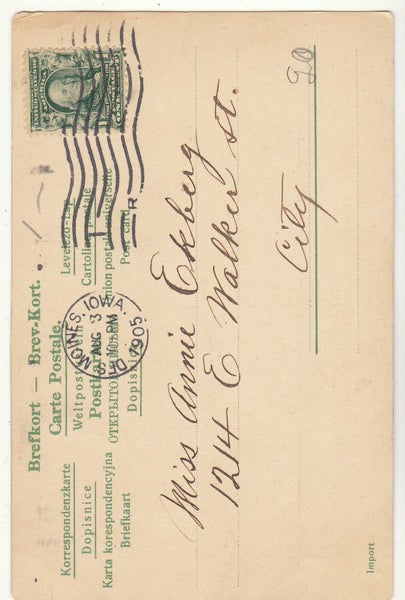 Brefkort — Brev-Kort.
Carte Postale.
Levelező-Lap
Weltpost
Cartolina postale
Postkarte
Union postale universelle
Korrespondenzkarte
Dopisnice
ОТКРЫТО
Karta korespondencyjna
Dopisnica
Post card
Briefkaart
DES MOINES, IOWA.
AUG 3
PM
1905
Miss Annie Ekberg
1214 E Walker st.
City
20
Import